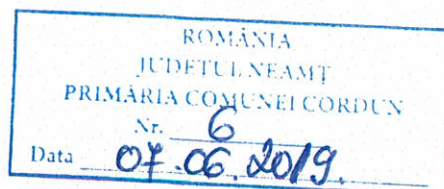 ROMÂNIA
JUDEŢUL NEAMŢ
PRIMĂRIA COMUNEI CORDUN
Nr. 6
Data 07.06.2019.